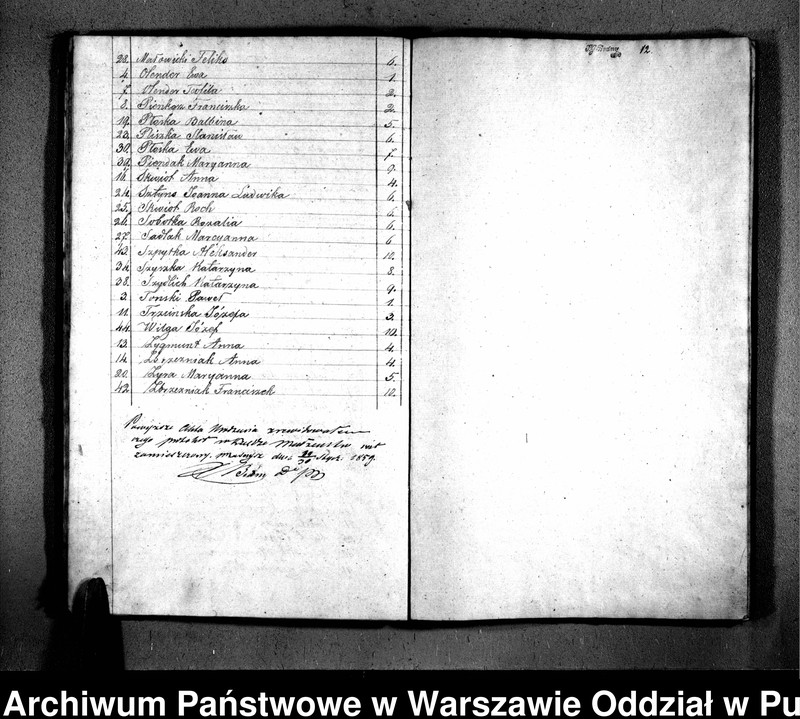 23. Małowicki Feliks 6.
4. Olender Ewa 1.
7. Olender Teofila 2.
8. Pienkos Franciszka 2.
19. Płoska Balbina 5.
22. Pliszka Stanisław 6.
30. Płoska Ewa 7.
39. Pieńdak Maryanna 9.
16. Skwiot Anna 4.
24. Sztyns Joanna Ludwika 6.
25. Skwiot Roch 6.
26. Sobotka Rozalia 6.
27. Sadlak Maryanna 6
43. Szpytka Aleksander 10.
34. Szyszka Katarzyna 8.
38. Szydlich Katarzyna 9.
3. Toński Paweł 1.
11. Trzcinska Józefa 3.
44. Wilga Józef 10.
13. Zygmunt Anna 4.
14. Zbrzezniak Anna 4.
20. Zyra Maryanna 5.
42. Zbrzezniak Franciszek 10.
Powyższe Akta Urodzenia zrewidowałem
czego protokół w Księdze Małżeństw jest
zamieszczony. dnia 18/30 Stycz. 1859.
12
Archiwum Państwowe w Warszawie Oddział w Pu